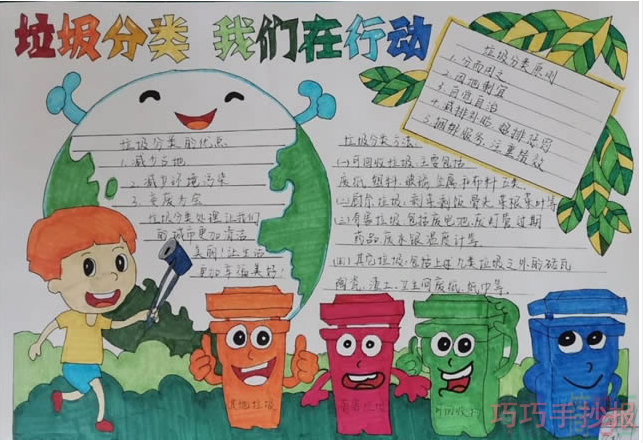 垃圾分类 我们在行动
垃圾分类原则
1.分而用之
2.因地制宜
3.自觉自治
4.减排补贴,超排惩罚
5.捆绑服务,注重绩效
垃圾分类的优点
1.减少占地
2.减少环境污染
3.变废为宝
垃圾分类处理让我们
的城市更加清洁
美丽!让生活
更加幸福美好!
垃圾分类方法:
(一)可回收垃圾:主要包括
废纸、塑料、玻璃、金属和布料五类.
(二)厨余垃圾:剩菜剩饭骨头菜根菜叶等
(三)有害垃圾:包括废电池废灯管过期
药品废水银温度计等.
(四)其他垃圾:包括上述几类垃圾之外的砖瓦
陶瓷,渣土,卫生间废纸,纸巾等.
其他垃圾
有害垃圾
巧巧手抄报